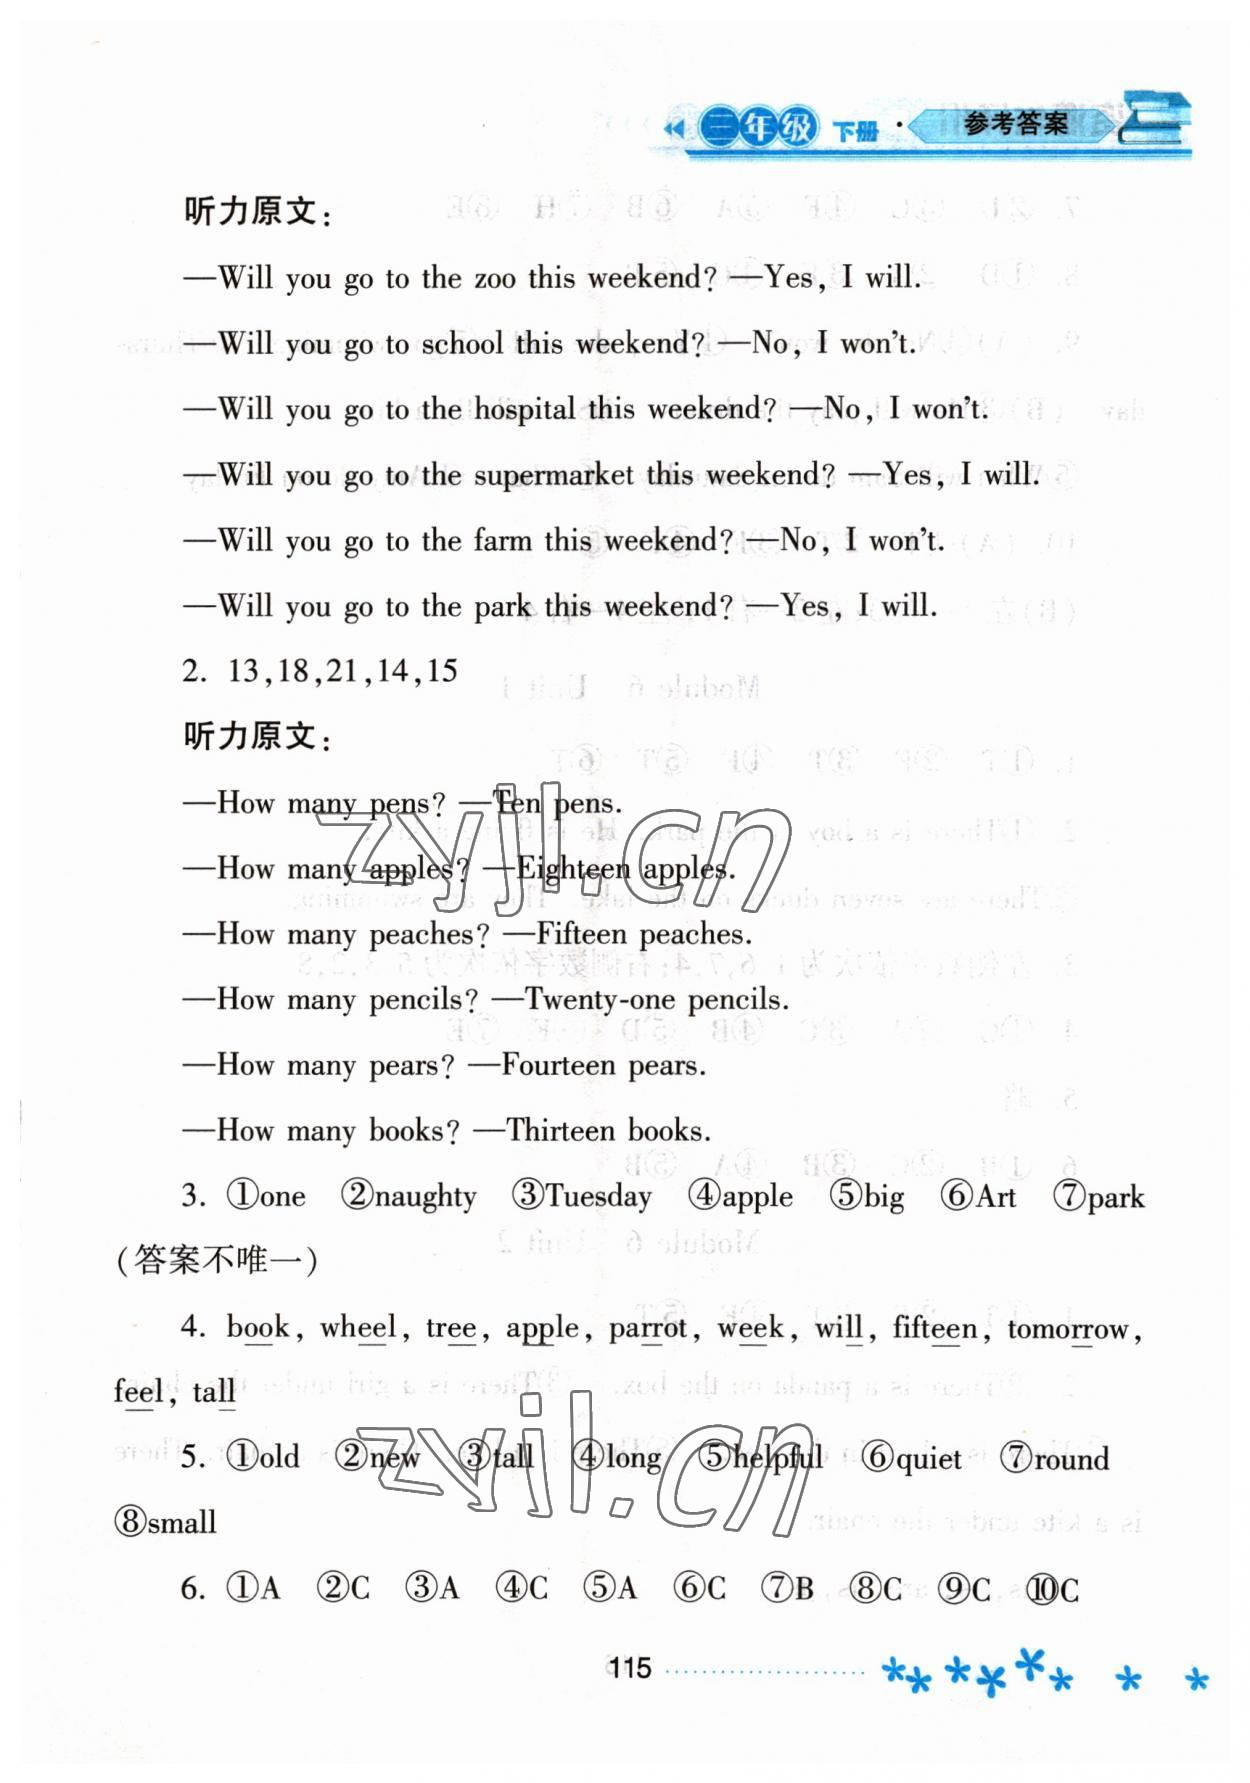 三年级 下册 · 参考答案
听力原文:
—Will you go to the zoo this weekend? —Yes, I will.
—Will you go to school this weekend? —No, I won't.
—Will you go to the hospital this weekend? —No, I won't.
—Will you go to the supermarket this weekend? —Yes, I will.
—Will you go to the farm this weekend? —No, I won't.
—Will you go to the park this weekend? —Yes, I will.
2. 13,18,21,14,15
听力原文:
—How many pens? —Ten pens.
—How many apples? —Eighteen apples.
—How many peaches? —Fifteen peaches.
—How many pencils? —Twenty-one pencils.
—How many pears? —Fourteen pears.
—How many books? —Thirteen books.
3. ①one ②naughty ③Tuesday ④apple ⑤big ⑥Art ⑦park
(答案不唯一)
4. book, wheel, tree, apple, parrot, week, will, fifteen, tomorrow,
feel, tall
5. ①old ②new ③tall ④long ⑤helpful ⑥quiet ⑦round
⑧small
6. ①A ②C ③A ④C ⑤A ⑥C ⑦B ⑧C ⑨C ⑩C
115
zyjl.cn
zyjl.cn